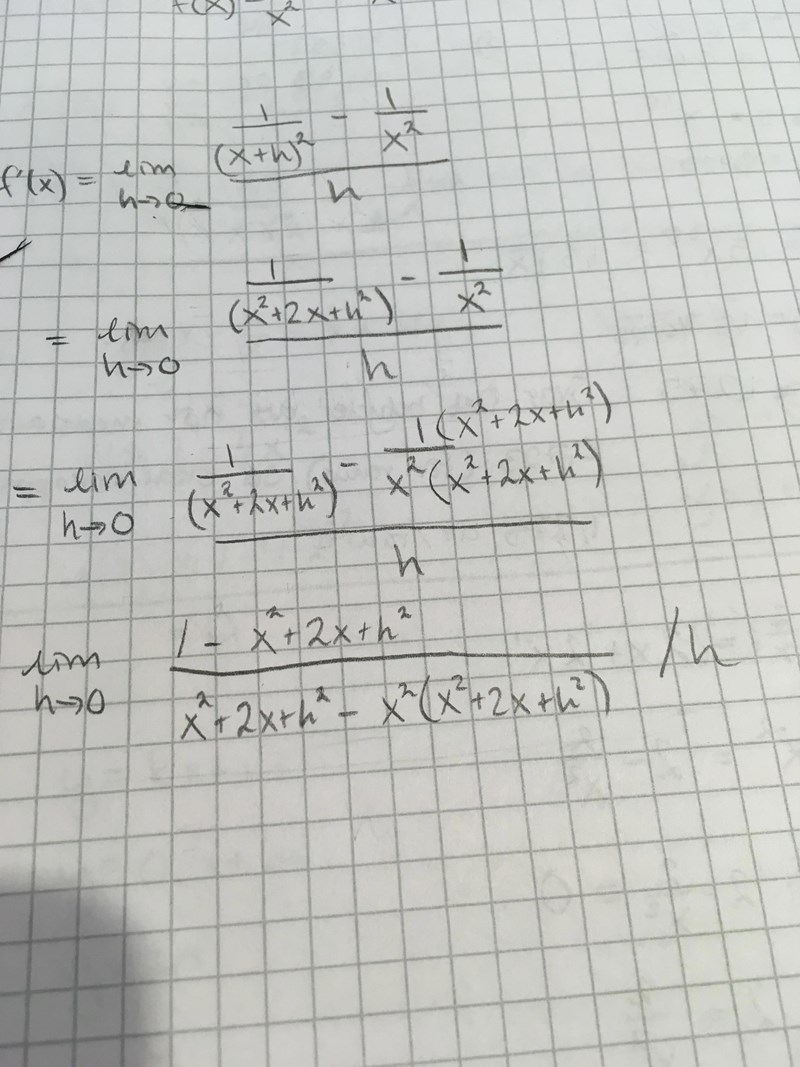 f'(x) = lim h→0 (1/(x+h)² - 1/x²)/h
= lim h→0 (1/(x²+2x+h²) - 1/x²)/h
= lim h→0 (1/(x²+2x+h²) - 1(x²+2x+h²)/x²(x²+2x+h²))/h
lim h→0 (1 - x²+2x+h²)/(x²+2x+h² - x²(x²+2x+h²)) /h